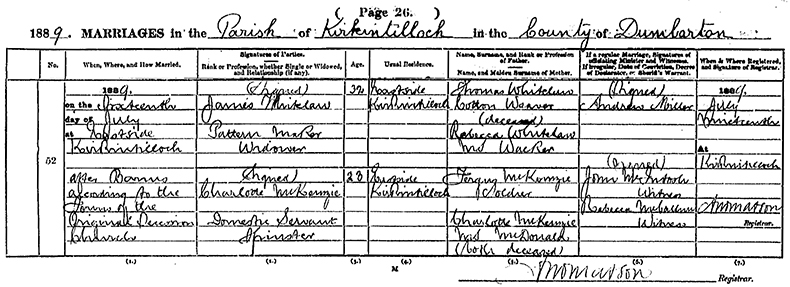 ( Page 26. )
1889. MARRIAGES in the Parish of Kirkintilloch in the County of Dumbarton
No.
When, Where, and How Married.
Signatures of Parties.
Rank or Profession, whether Single or Widowed, and Relationship (if any).
Age.
Usual Residence.
Name, Surname, and Rank or Profession of Father.
Name, and Maiden Surname of Mother.
If a regular Marriage, Signatures of officiating Minister and Witnesses.
If irregular, Date of Conviction, Decree of Declarator, or Sheriff's Warrant.
When & Where Registered, and Signature of Registrar.
52
1889.
on the Sixteenth
day of July
at Eastside
Kirkintilloch
after Banns
according to the
Forms of the
Original Secession
Church
(Signed)
James Whitelaw
Pattern Maker
Widower
(Signed)
Charlotte McKenzie
Domestic Servant
Spinster
32
28
Eastside
Kirkintilloch
Eastside
Kirkintilloch
Thomas Whitelaw
Cotton Weaver
(deceased)
Rebecca Whitelaw
Ms Walker
Fergus McKenzie
Soldier
Charlotte McKenzie
Ms McDonald
(both deceased)
(Signed)
Andrew Miller
(Signed)
John McIntosh
Witness
Rebecca McCallum
Witness
1889.
July
Nineteenth
At
Kirkintilloch
Registrar.
(1.)
(2.)
(3.)
(4.)
(5.)
(6.)
(7.)
M
Registrar.